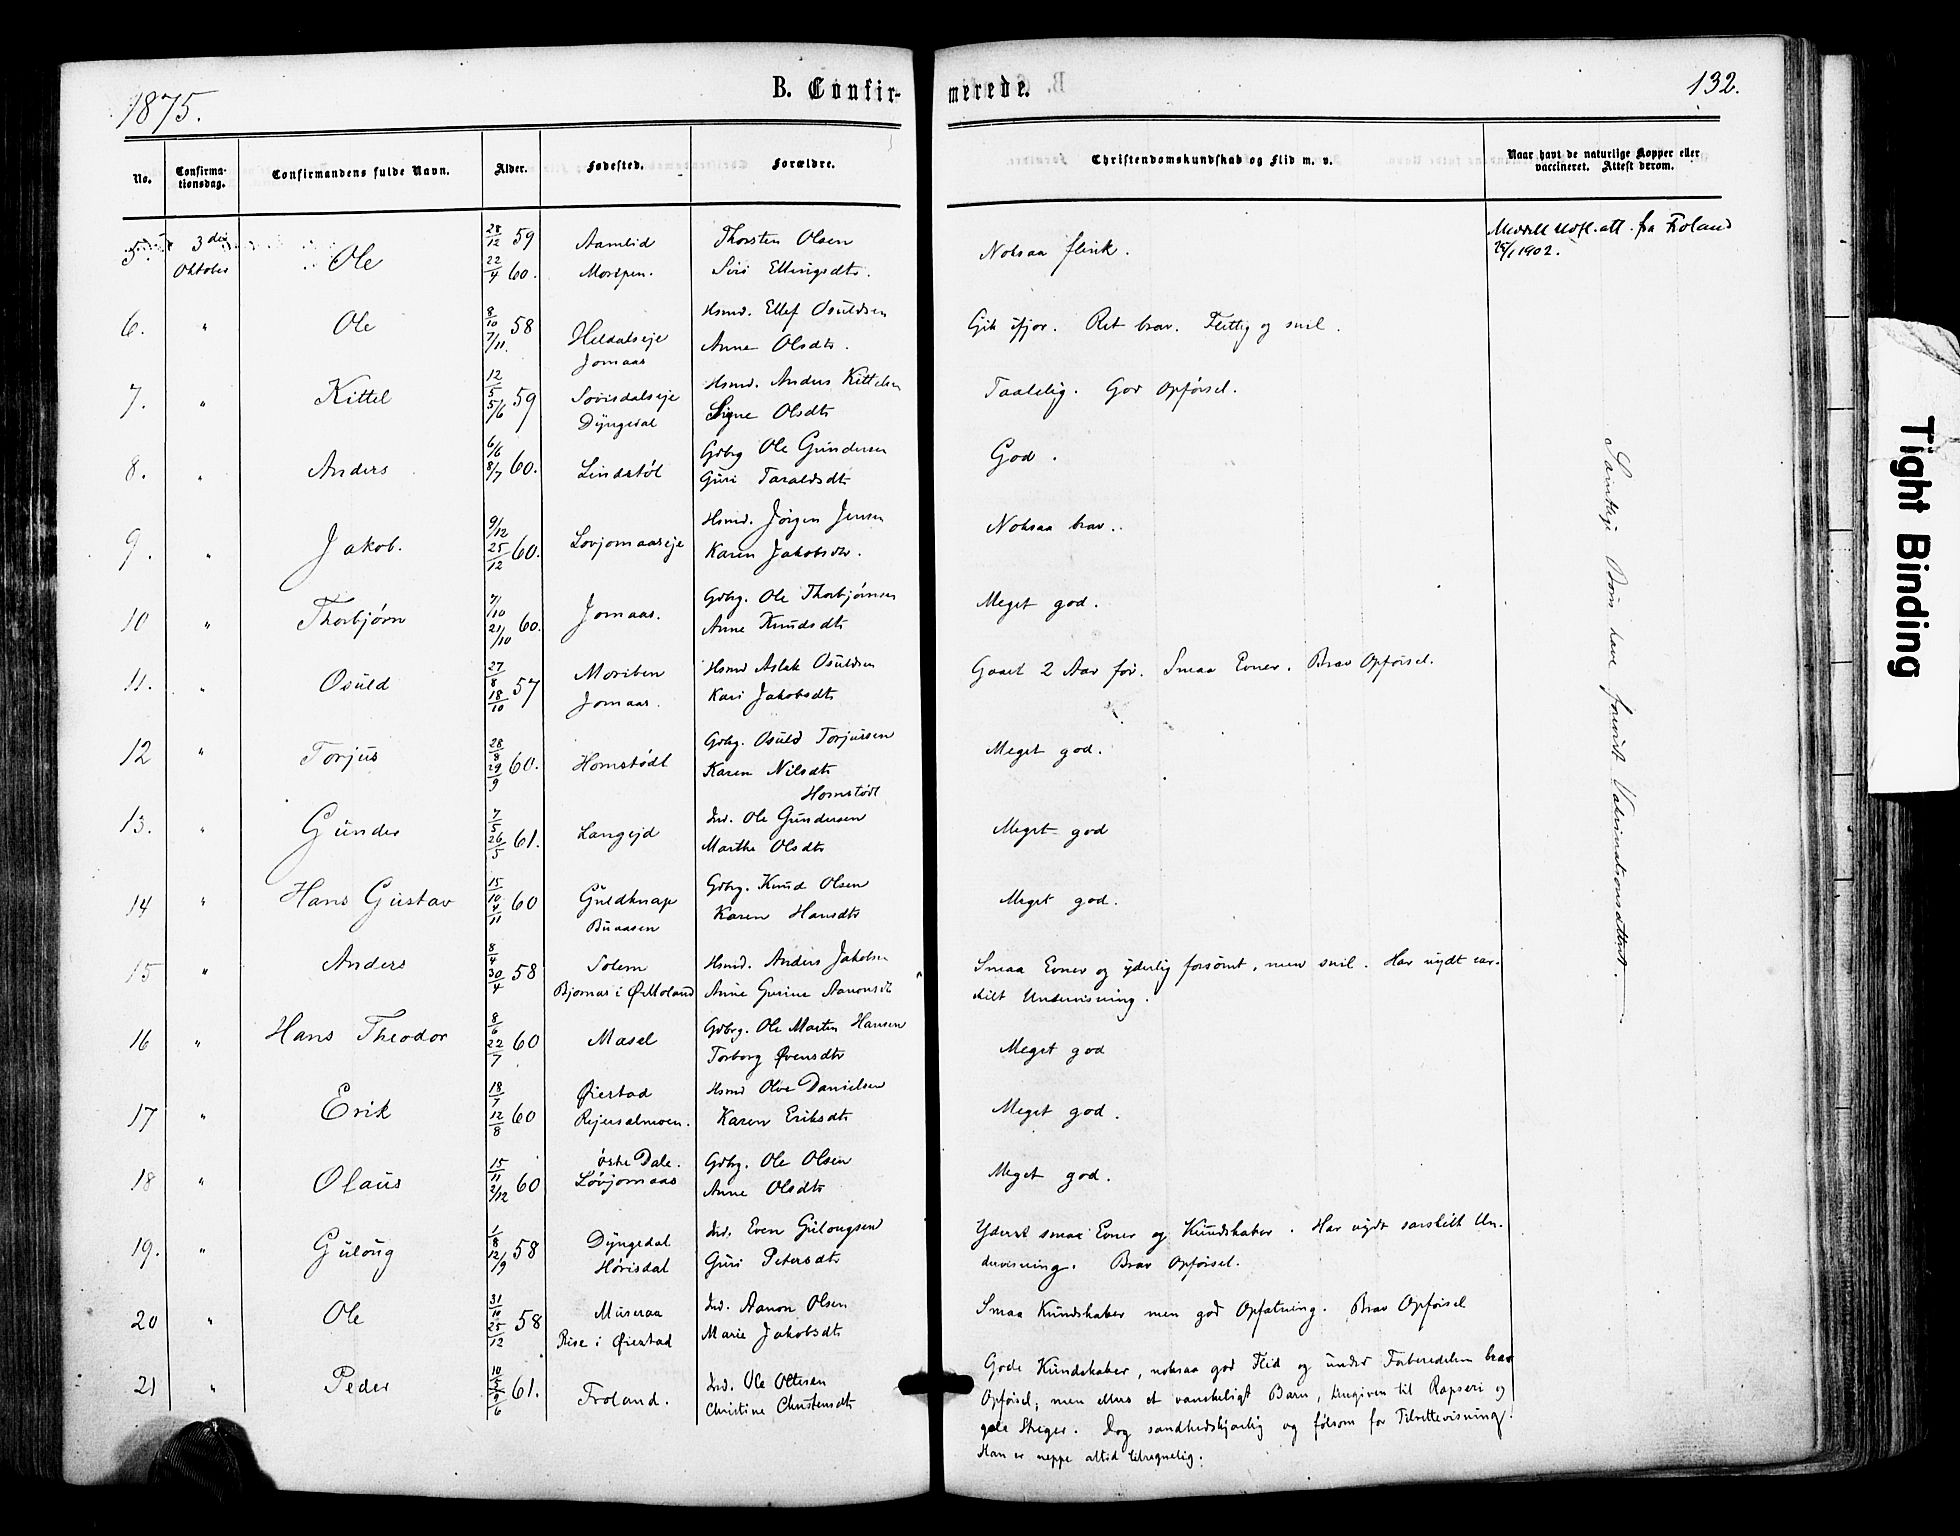 1875.
B. Confir-
merede.
132.
No.
Confirma-
tionsdag.
Confirmandens fulde Navn.
Alder.
Fødested.
Forældre.
Christendomskundskab og Flid m. v.
Naar havt de naturlige Kopper eller
vaccineret. Attest derom.
5. 3die Oktober Ole 28/12 59 22/4 60. Aamlid Thorsten Olsen
Siri Ellingsdtr.
Noksaa flink.
att. fra Froland
1902.
6. " Ole 8/10 58 7/11. Heldalseje Jomaas Hsmd. Ellef Osuldsen
Anne Olsdtr.
Gik ifjor. Ret brav. Flittig og snil.
7. " Kittel 12/5 59 5/6 Sovisdalseje Dyngedal Hsmd. Anders Kittelsen
Signe Olsdtr
Taalelig. God Opførsel.
8. " Anders 6/6 60. 8/7 Lindstøl Gdbrg Ole Gundersen
Guri Taraldsdtr
God.
9. " Jakob. 9/12 60. 25/12 Lovjomaaseje Hsmd. Jørgen Jensen
Karen Jakobsdtr.
Noksaa brav.
10 " Thorbjørn 7/10 60. 21/10 Jomaas. Gdbrg. Ole Thorbjørnsen
Anne Knudsdtr
Meget god.
11. " Osuld 27/8 57 18/10 Moriben Jomaas. Hsmd Aslak Osuldsen
Kari Jakobsdtr
Gaaet 2 Aar før. Smaa Evner. Brav Opførsel.
12 " Torjus 28/8 60. 29/9 Homstødt Gdbg. Osuld Torjussen
Karen Nilsdtr
Homstødt
Meget god.
13. " Gunder 7/5 61. 26/5 Langejd Ind. Ole Gundersen
Marthe Olsdtr
Meget god
14 " Hans Gustav 15/10 60 4/11 Guldknap Buaasen Gdbrg. Knud Olsen
Karen Hansdtr
Meget god.
15 " Anders 8/4 58 30/4 Solem Bjornas i Ø.Moland Hsmd. Anders Jakobsen
Anne Gurine Aanonsdtr
Smaa Evner og yderlig forsømt, men snil. Har nydt sær-
skilt Undervisning.
16 " Hans Theodor 8/6 60 22/7 Mæsel Gdbrg. Ole Martin Hansen
Torborg Øvensdtr
Meget god
17 " Erik 18/7 60 12/8 Øiestad Rejersølmoen. Hsmd Olve Danielsen
Karen Eriksdtr
Meget god.
18 " Olaus 15/11 60 2/12 østre Dale. Løvjomaas Gdbg. Ole Olsen
Anne Olsdtr
Meget god.
19. " Guloug 1/8 58 12/9 Dyngedal Hørisdal Ind. Even Gulougsen
Guri Petersdtr
Yderst smaa Evner og Kundskaber. Har nydt særskilt Un-
dervisning. Brav Opførsel.
20 " Ole 31/10 58 25/12 Museraa Rise i Øiestad Ind. Aanon Olsen
Marie Jakobsdtr
Smaa Kundskaber men god Opfatning. Brav Opførsel
21 " Peder 61. Froland. Ind. Ole Ottesen
Christine Christensdtr
Gode Kundskaber, noksaa god Flid og under Forberedelsen brav
Opførsel; men ellers et vanskeligt Barn, hengiven til Rapseri og
gale Streger. Dog sandhedskjærlig og følsom for Tilrettevisning.
Han er neppe altid tilregnelig.
Samtlige Børn have forevist Vaksinationsattest.
Tight Binding